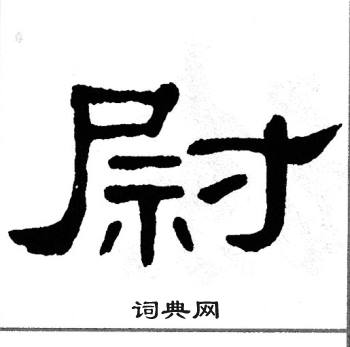 尉
词典网